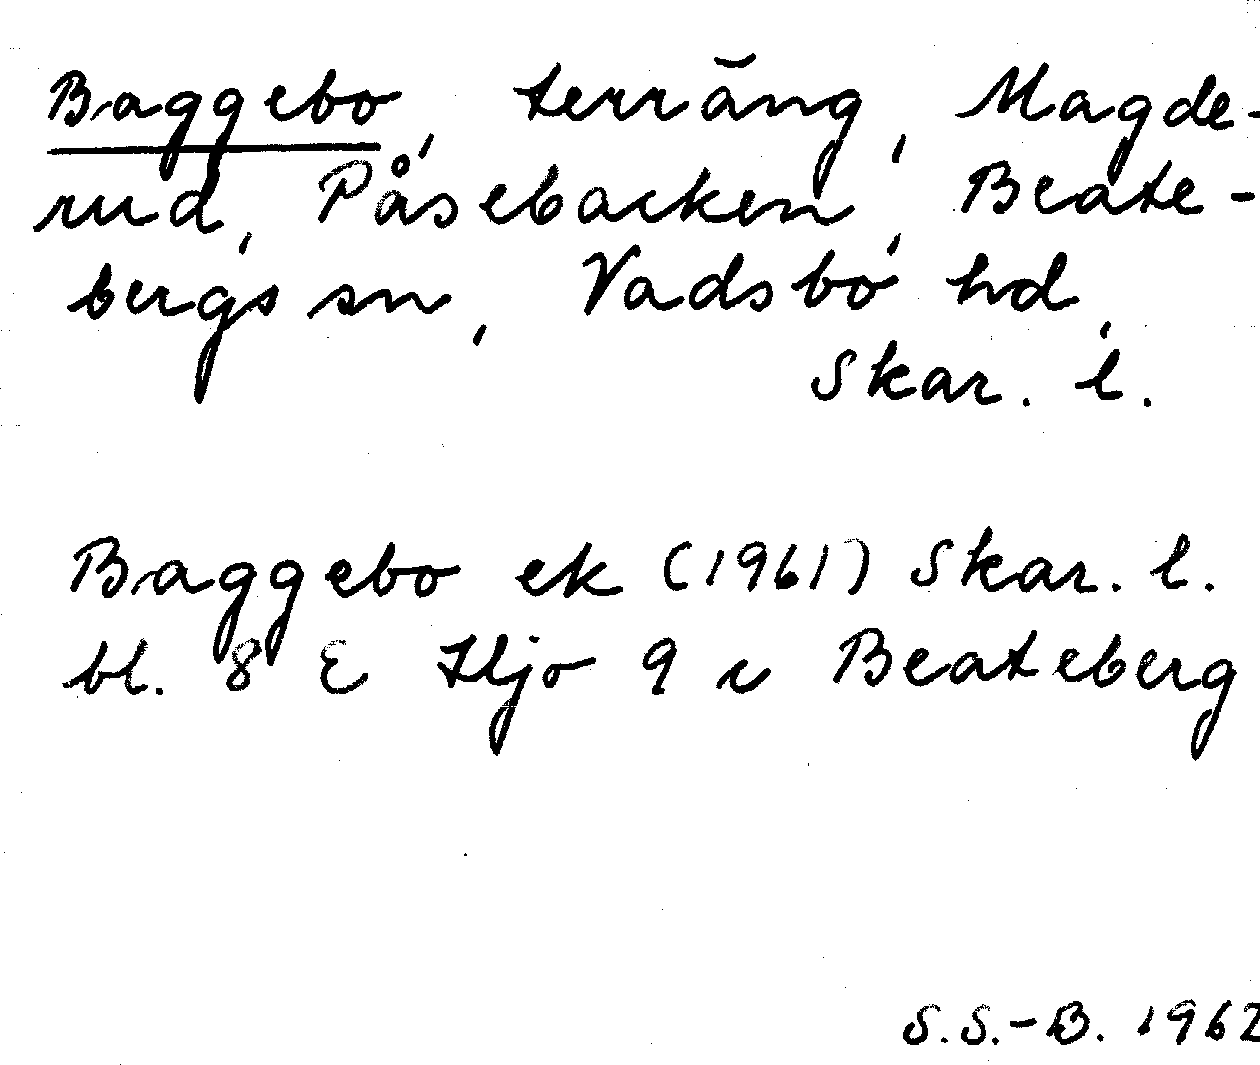 Baggebo, terräng, Magde-
rud, Påsebacken, Beate-
bergs sn, Vadsbo hd,
Skar. l.
Baggebo ek (1961) Skar. l.
bl. 8 E Hjo 9 c Beateberg
S.S.-B. 1962